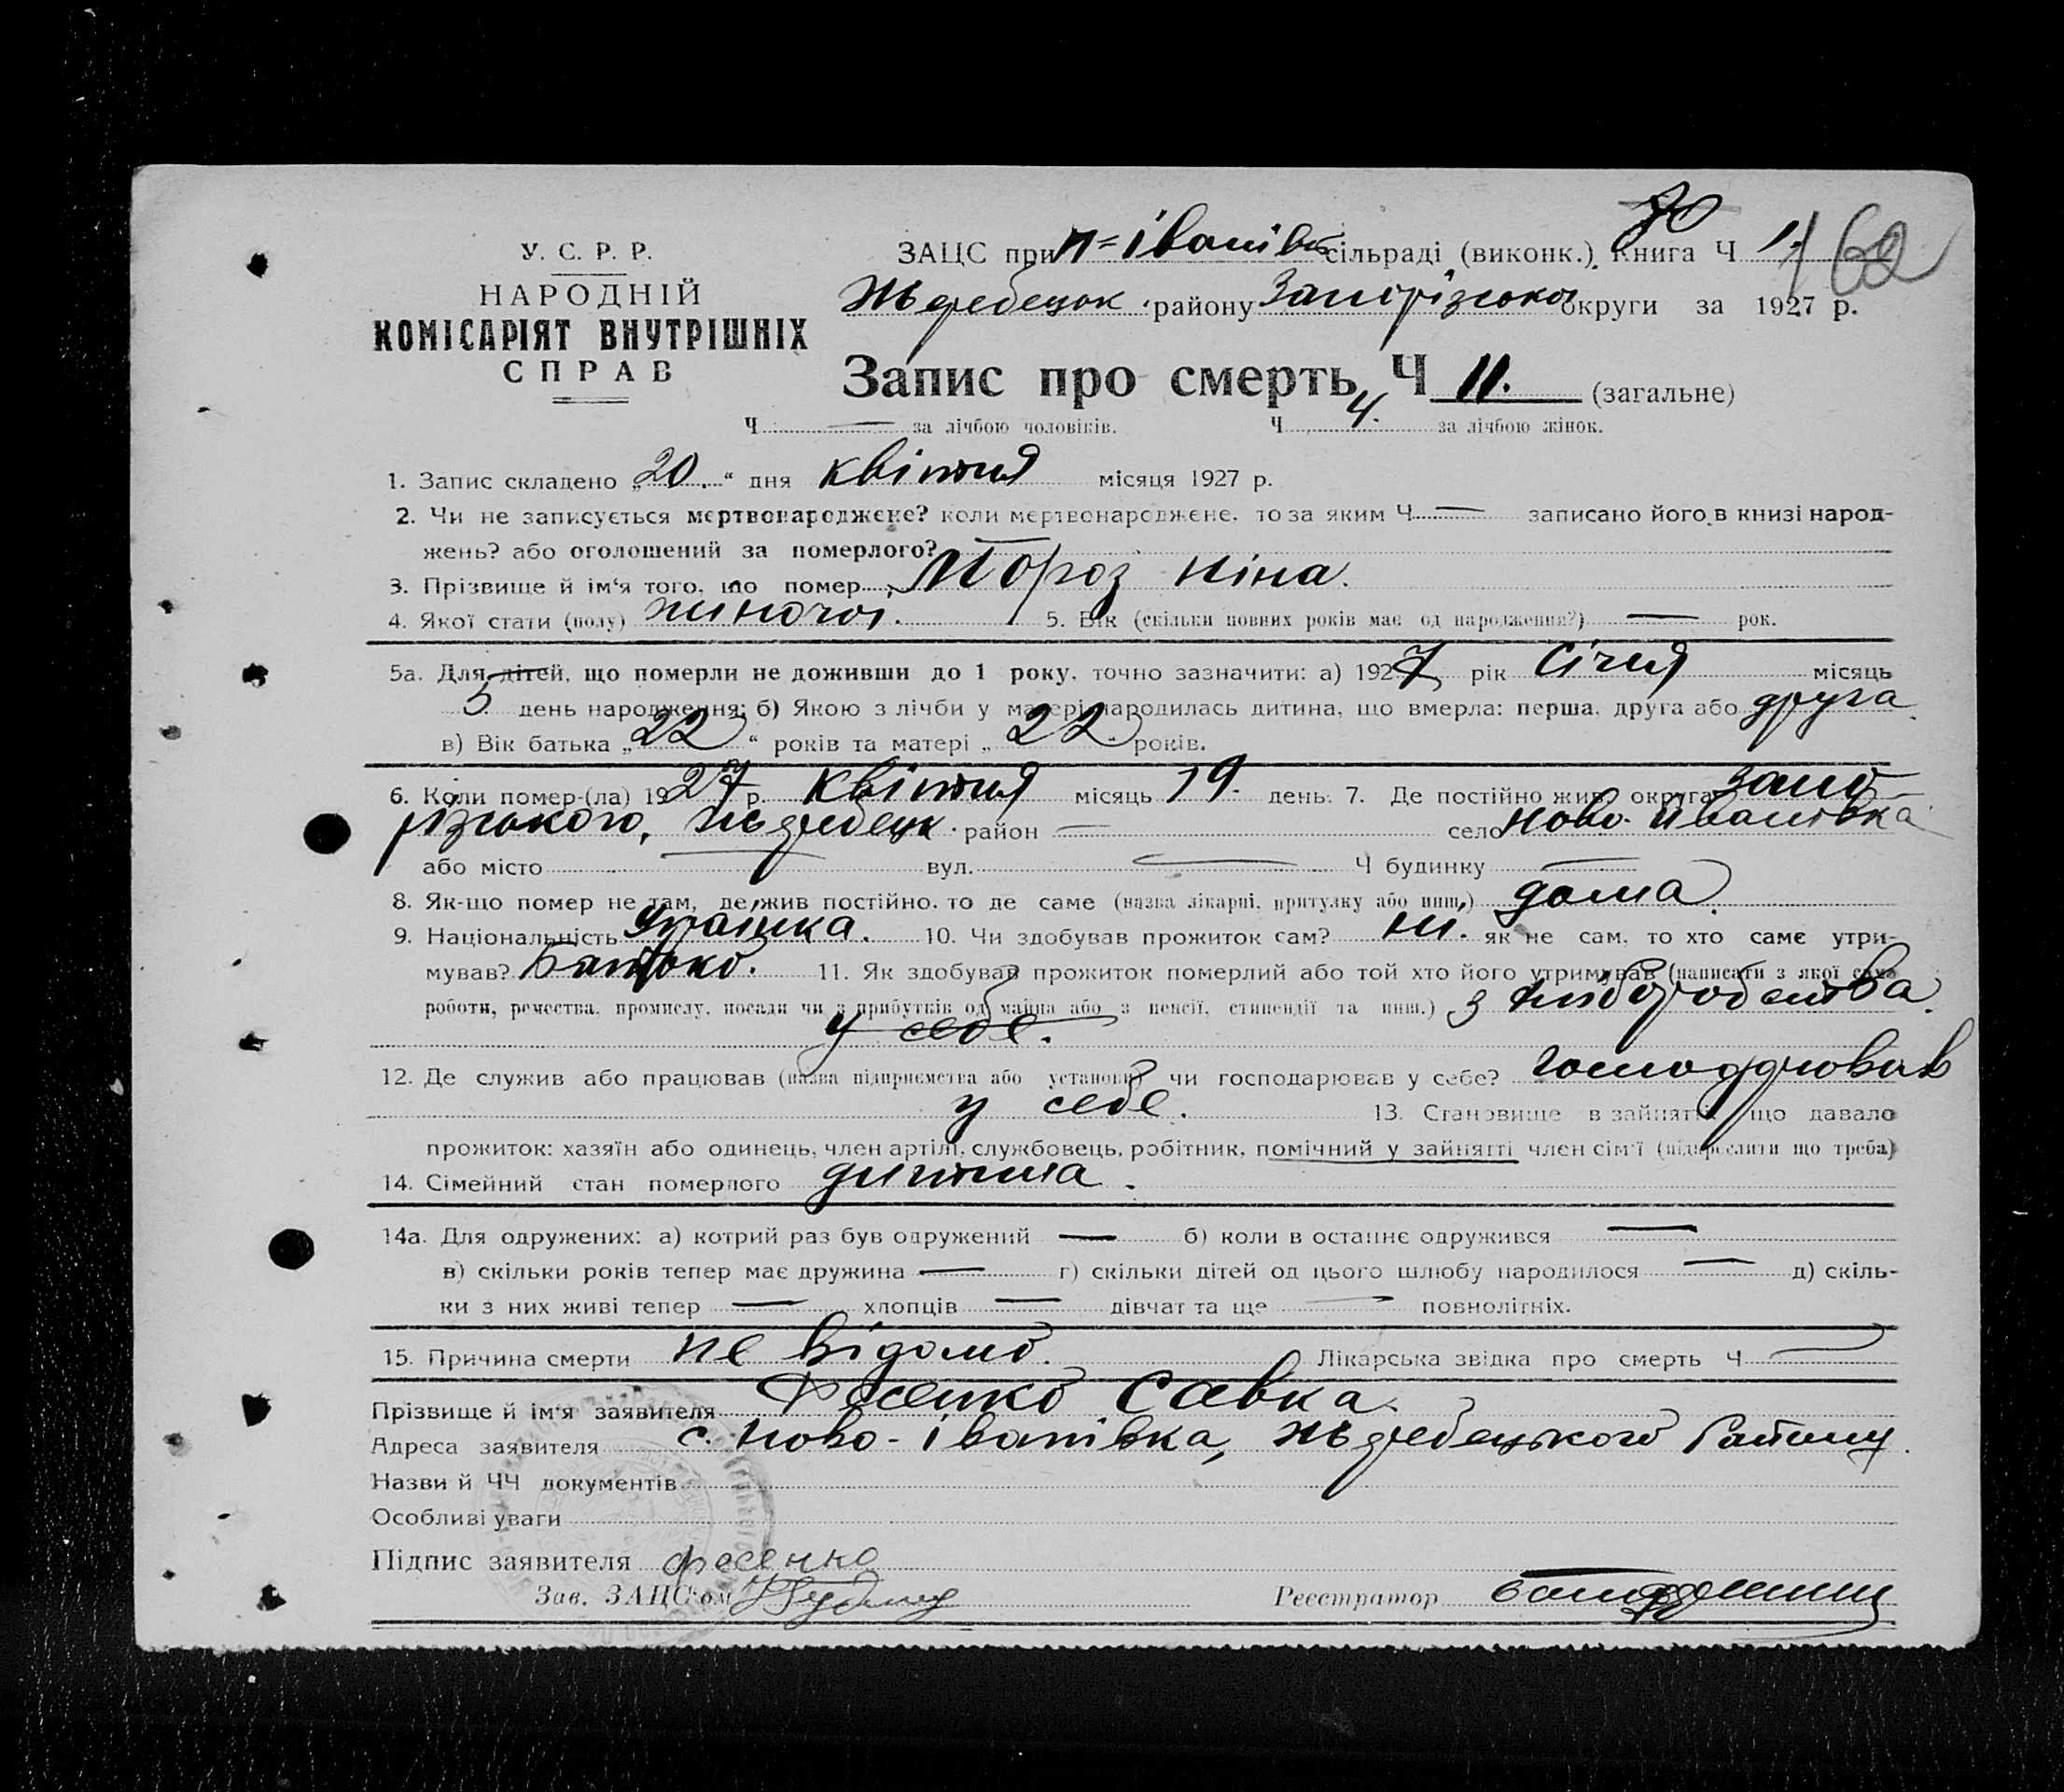 У. С. Р. Р.
НАРОДНІЙ
КОМІСАРІЯТ ВНУТРІШНІХ
СПРАВ
ЗАЦС при Н=Іванівс сільраді (виконк.) Книга Ч 1. 162
Жеребецьк. району Запорізької округи за 1927 р.
Запис про смерть Ч 11. (загальне)
Ч — за лічбою чоловіків. Ч 4. за лічбою жінок.
1. Запис складено „20.“ дня квітня місяця 1927 р.
2. Чи не записується мертвонароджене? коли мертвонароджене, то за яким Ч — записано його в книзі народ-
жень? або оголошений за померлого? —
3. Прізвище й ім'я того, що помер Мороз Ніна.
4. Якої стати (полу) жиночої. 5. Вік (скільки повних років має од народження?) — рок.
5а. Для дітей, що померли не доживши до 1 року, точно зазначити: а) 1927 рік Січня місяць
5 день народження; б) Якою з лічби у матері народилась дитина, що вмерла: перша, друга або друга
в) Вік батька „22“ років та матері „22 років.
6. Коли помер-(ла) 1927 р. квітня місяць 19. день. 7. Де постійно жив: округа Запо-
різького, Жеребецьк. район — село Ново-Іванівка
або місто — вул. — Ч будинку —
8. Як-що помер не там, де жив постійно, то де саме (назва лікарні, притулку або инш.) дома.
9. Національність Українка. 10. Чи здобував прожиток сам? ні. як не сам, то хто саме утри-
мував? Батько. 11. Як здобував прожиток померлий або той хто його утримував (написати з якої саме
роботи, ремества, промислу, посади чи з прибутків од майна або з пенсії, стипендії та инш.) з хліборобства.
у себе.
12. Де служив або працював (назва підприємства або установи) чи господарював у себе? господарював
у себе. 13. Становище в зайнятті, що давало
прожиток: хазяїн або одинець, член артілі, службовець, робітник, помічний у зайнятті член сім'ї (підкреслити що треба)
14. Сімейний стан померлого дитина.
14а. Для одружених: а) котрий раз був одружений — б) коли в останнє одружився —
в) скільки років тепер має дружина — г) скільки дітей од цього шлюбу народилося — д) скіль-
ки з них живі тепер — хлопців — дівчат та ще — повнолітніх.
15. Причина смерти не відомо. Лікарська звідка про смерть Ч —
Прізвище й ім'я заявителя Фесенко Савка.
Адреса заявителя с. Ново-Іванівка, Жеребецького Району.
Назви й ЧЧ документів
Особливі уваги
Підпис заявителя Фесенко
Зав. ЗАЦС'ом Реєстратор